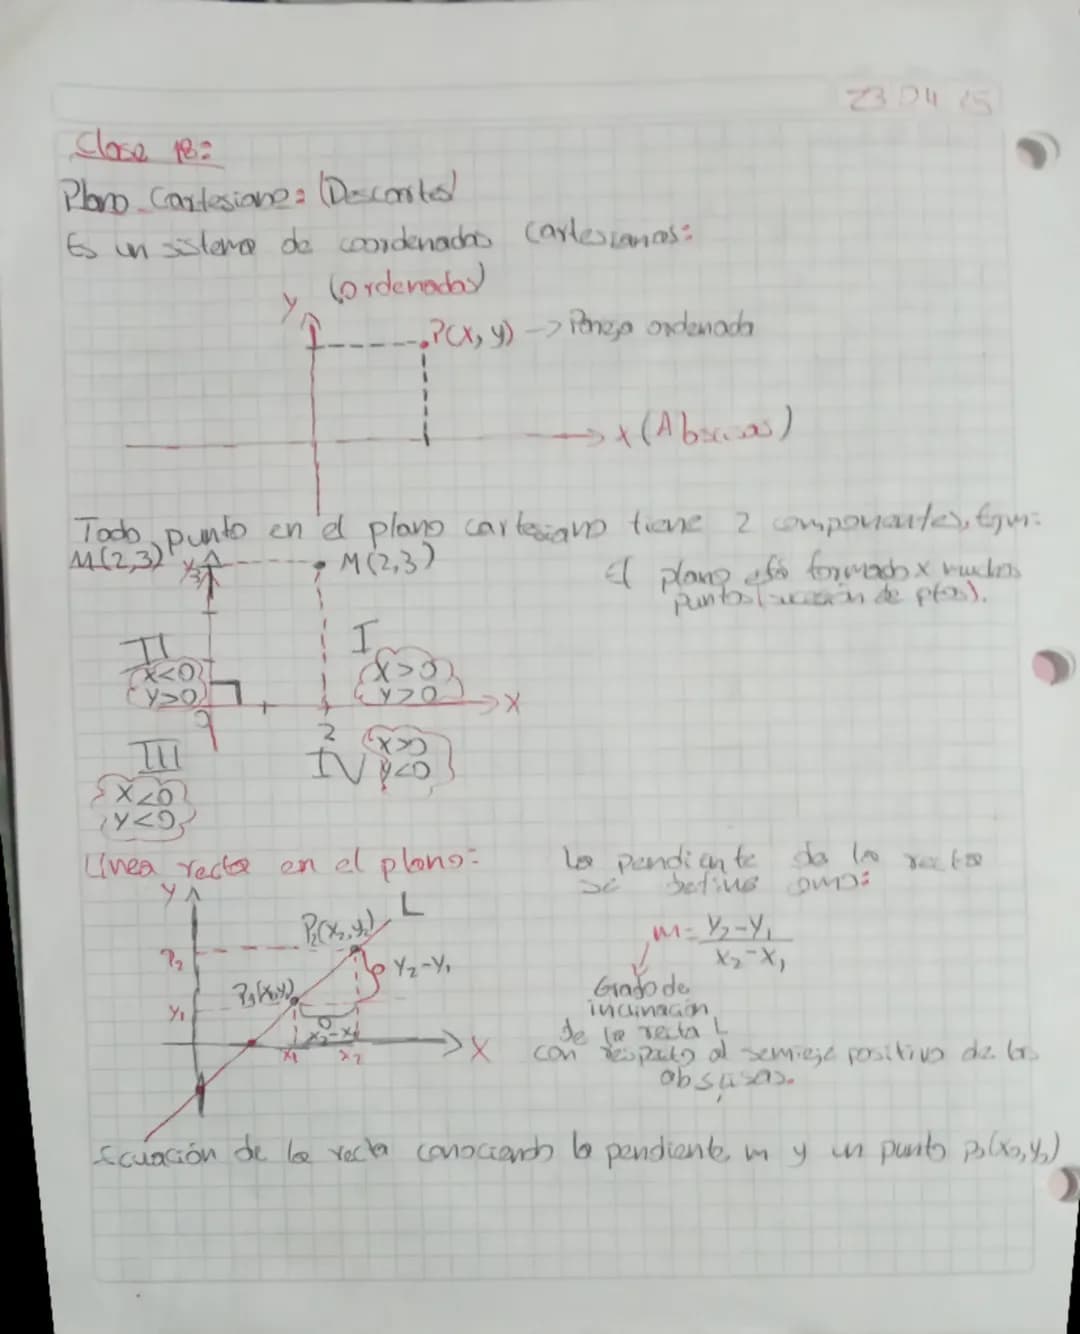 23 04 25
Clase 18:
Plano Cartesiano: (Descartes)
Es un sistema de coordenadas cartesianas:
Y (ordenadas)
P(x, y) -> Pareja ordenada
x (Abscisas)
Todo punto en el plano cartesiano tiene 2 componentes,
M(2,3)
Y
3
M(2,3)
El plano está formado x muchos
puntos (sucesión de ptos).
II
x<0
y>0
I
x>0
y>0
X
2
III
x<0
y<0
IV
x>0
y<0
Línea recta en el plano:
La pendiente de la recta
se define como:
Y
L
P2(x2,y2)
m = Y2-Y1
X2-X1
Y2-Y1
Y1
x2-x1
x1
x2
X
Grado de
inclinación
de la recta L
con respecto al semieje positivo de las
absisas.
Ecuación de la recta conociendo la pendiente m y un punto